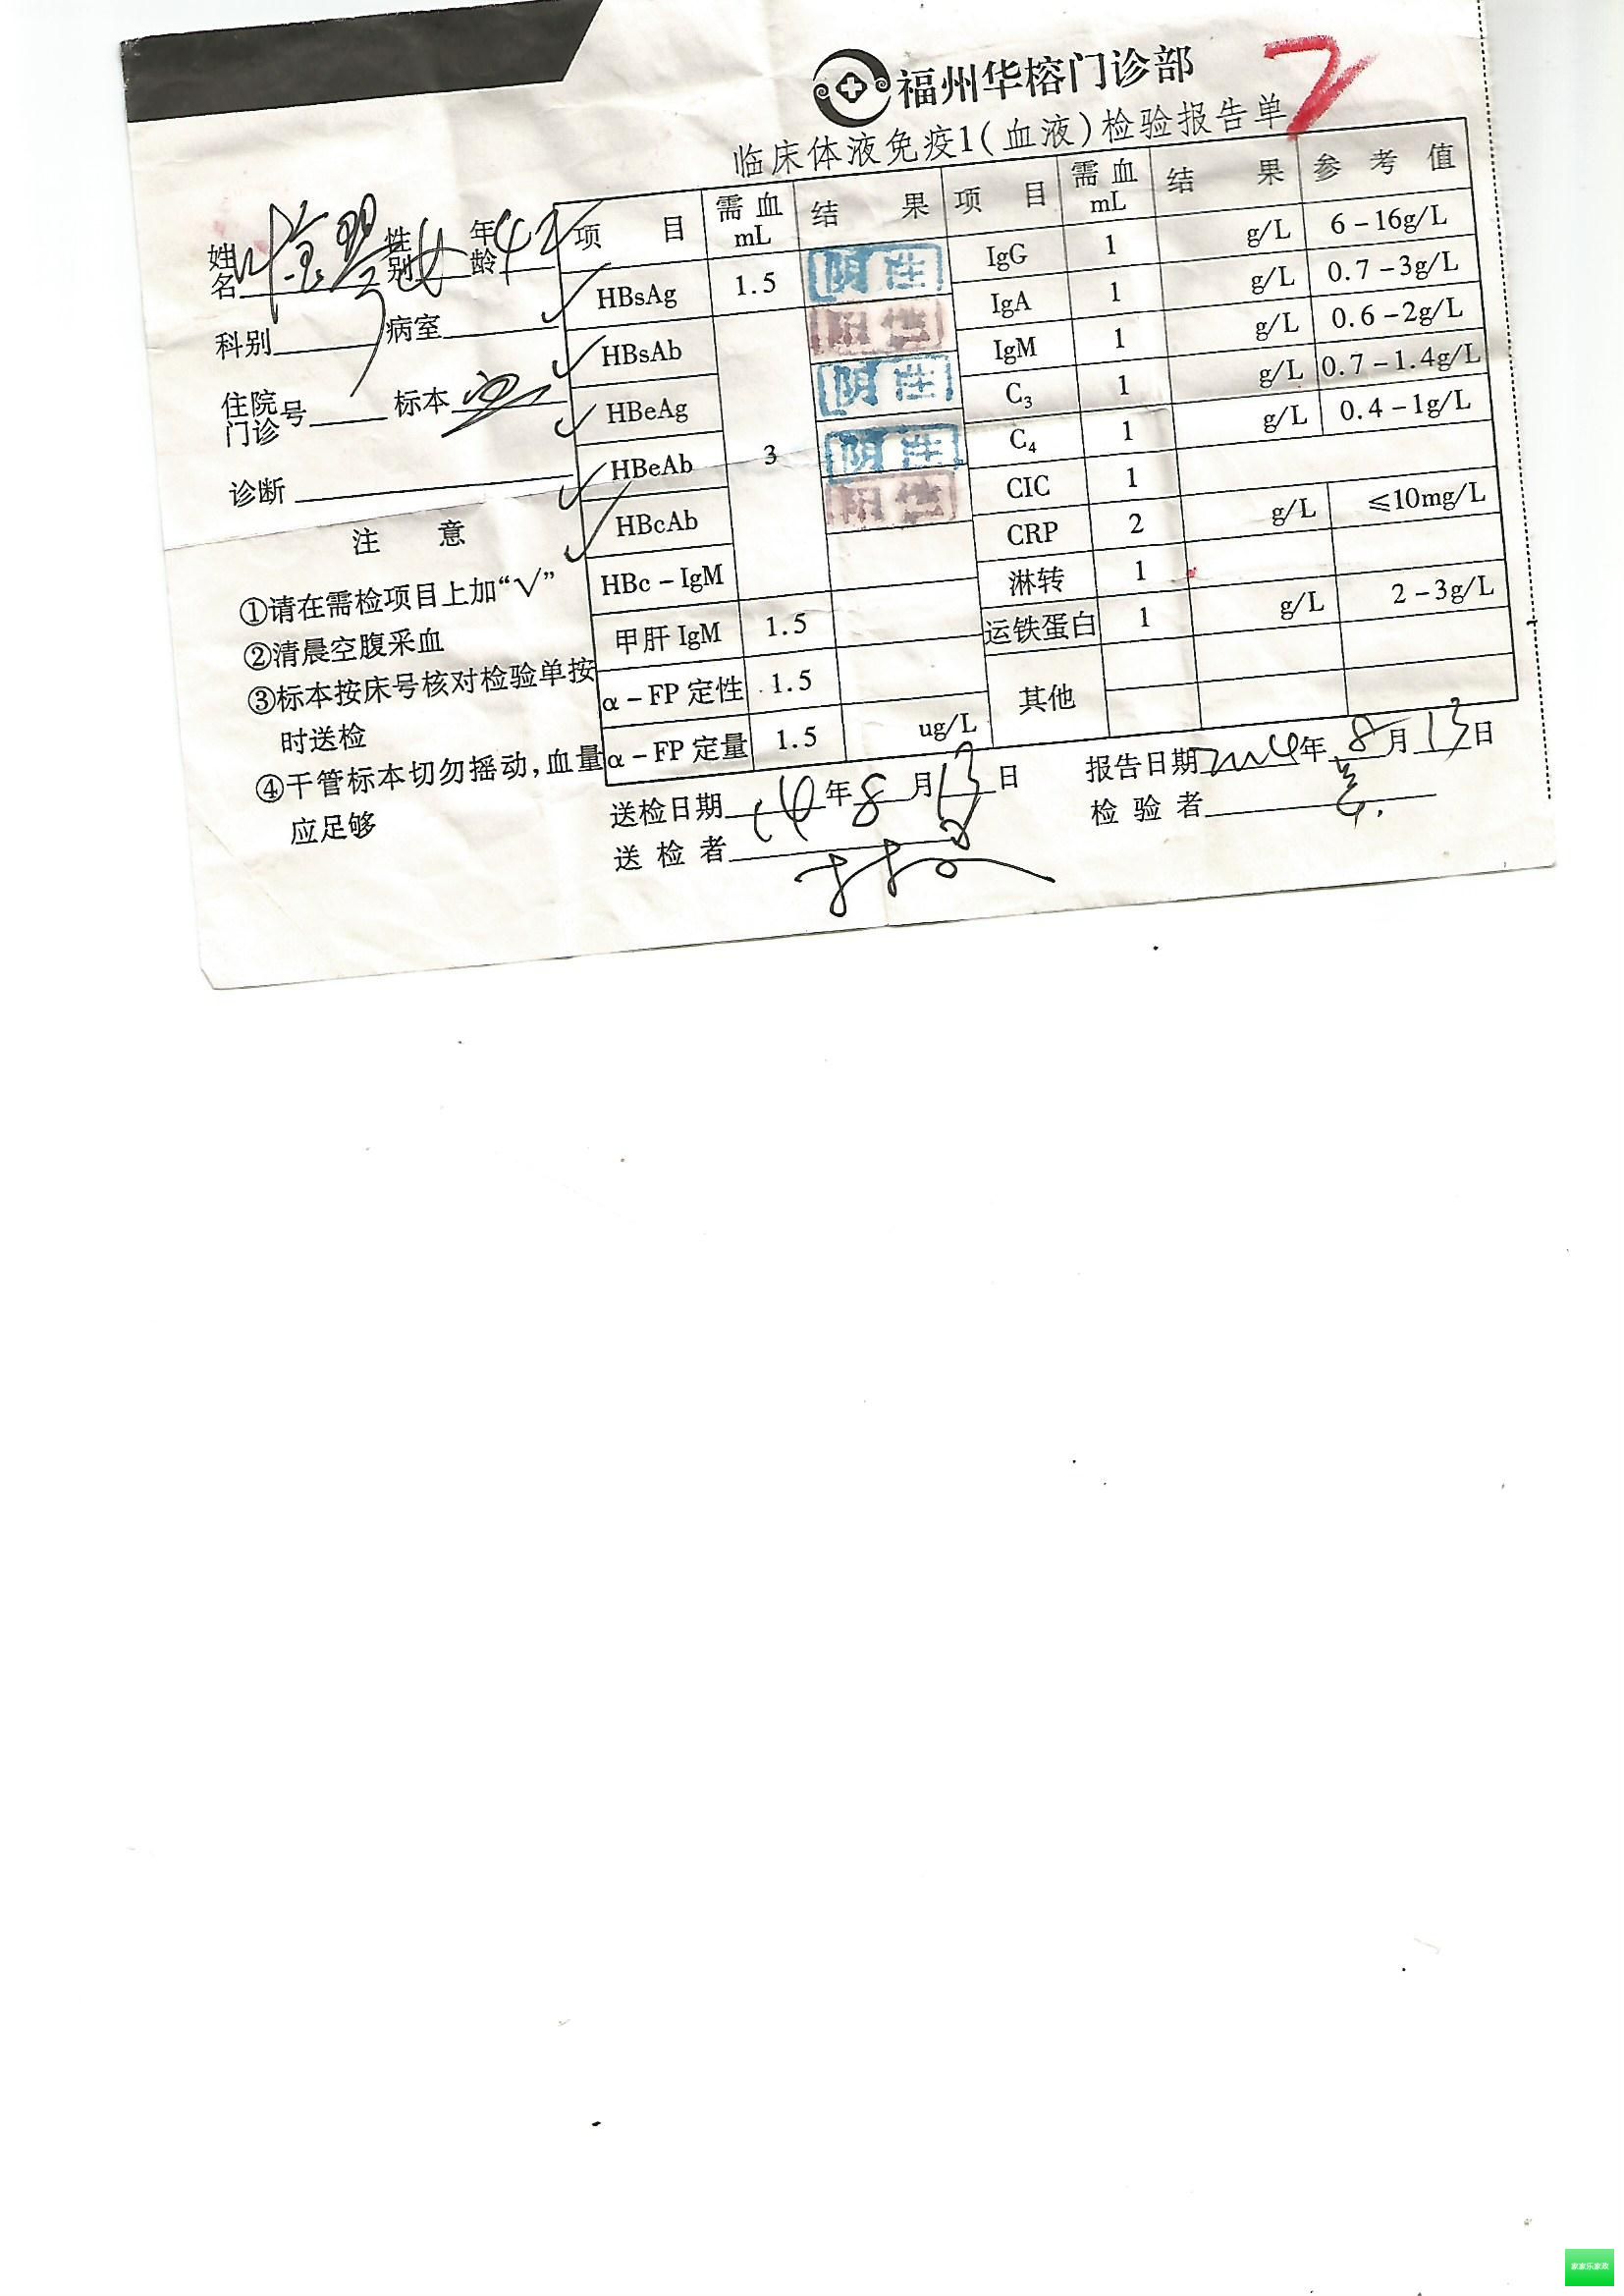 福州华榕门诊部
临床体液免疫1(血液)检验报告单
2
姓名 性别 女 年龄 42
科别 病室
住院门诊号 标本
诊断
注 意
①请在需检项目上加“√”
②清晨空腹采血
③标本按床号核对检验单按
时送检
④干管标本切勿摇动,血量
应足够
项 目 需血mL 结 果 项 目 需血mL 结 果 参 考 值
HBsAg 1.5 阴性 IgG 1 g/L 6-16g/L
HBsAb 阳性 IgA 1 g/L 0.7-3g/L
HBeAg 阴性 IgM 1 g/L 0.6-2g/L
HBeAb 3 阴性 C3 1 g/L 0.7-1.4g/L
HBcAb 阳性 C4 1 g/L 0.4-1g/L
HBc-IgM CIC 1
甲肝IgM 1.5 CRP 2 g/L ≤10mg/L
α-FP定性 1.5 淋转 1
α-FP定量 1.5 ug/L 运铁蛋白 1 g/L 2-3g/L
其他
送检日期 14年8月13日 报告日期 2014年8月13日
送检者 检验者
家家乐家政